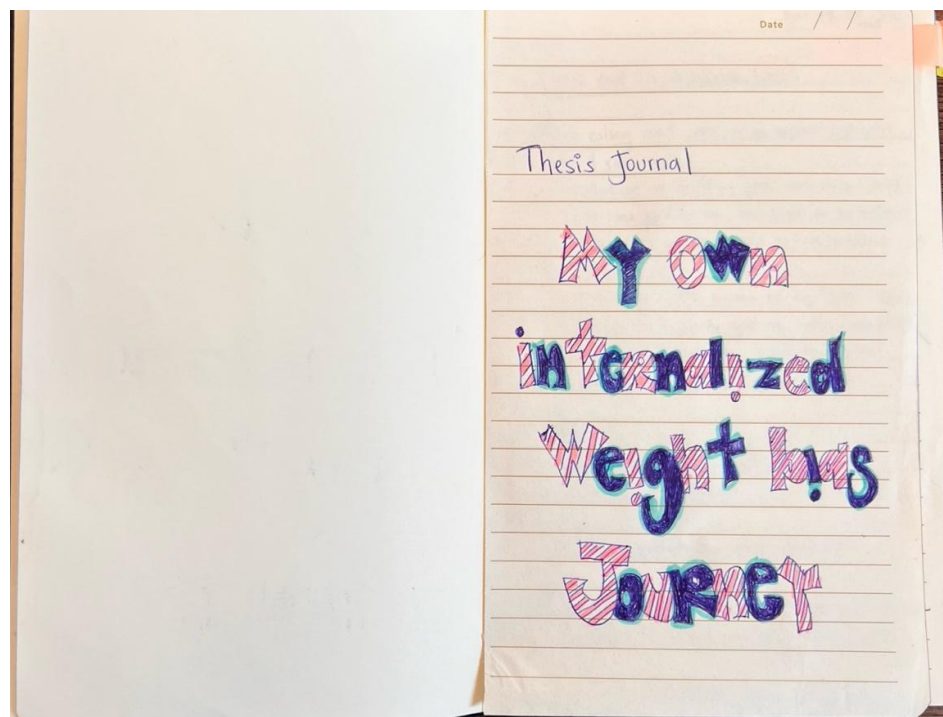 Date / /
Thesis Journal
My Own
internalized
Weight bias
Journey